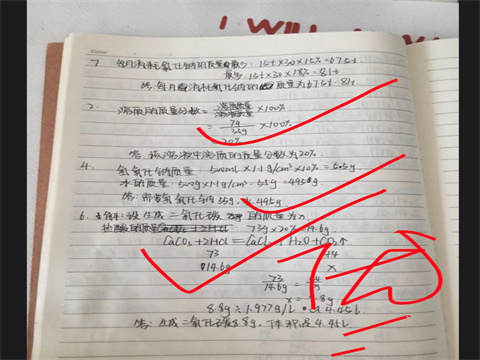 I WILL
7. 每月消耗氢氧化钠的质量最少: 15t×30×15%=67.5t
最多 15t×30×18%=81t
答: 每月消耗氢氧化钠的质量为67.5t-81t
2. 溶质的质量分数=溶质质量/溶液质量×100%
= 7g/35g ×100%
=20%
答: 该溶液中溶质的质量分数为20%
4. 氢氧化钠质量 500ml×1.1g/cm³×10%=
水的质量 500g×1.1g/cm³-55g=495g
答: 需要氢氧化钠55g, 水495g
6. 解: 设生成二氧化碳的质量为x
73g×20%=14.6g
CaCO₃+2HCl=CaCl₂+H₂O+CO₂↑
73 44
14.6g x
73/14.6g=44/x
x=8.8g
8.8g÷1.977g/L=4.45L
答: 生成二氧化碳8.8g, 体积是4.45L